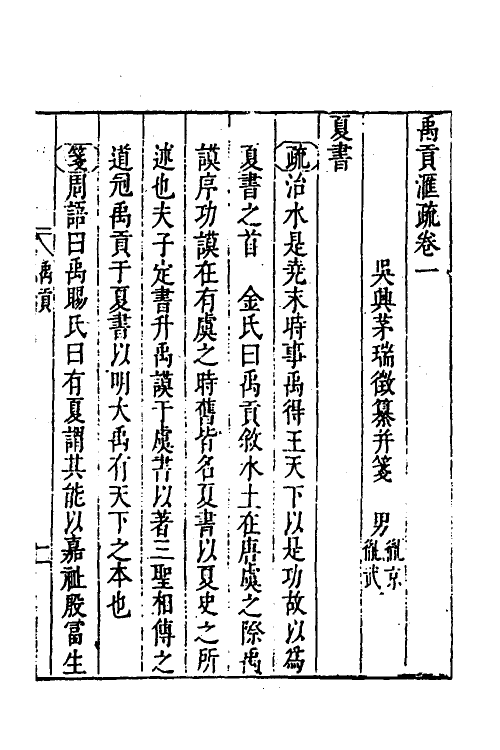 禹貢滙疏卷一
吳興茅瑞徵纂并箋　男
胤京
胤武
夏書
疏治水是堯末時事禹得王天下以是功故以為
夏書之首　金氏曰禹貢敘水土在唐虞之際禹
謨序功謨在有虞之時舊皆名夏書以夏史之所
述也夫子定書升禹謨于虞書以著三聖相傳之
道冠禹貢于夏書以明大禹有天下之本也
箋周語曰禹賜氏曰有夏謂其能以嘉祉殷富生
禹貢
一